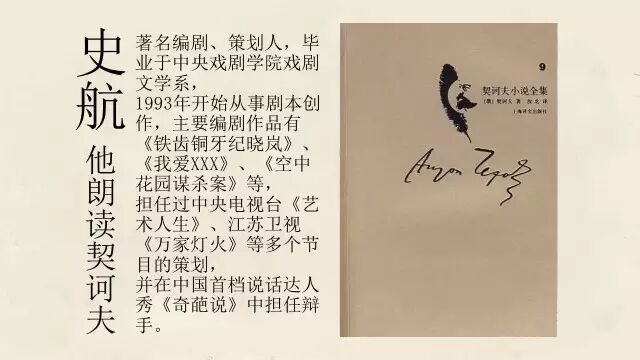 史航
他朗读契诃夫
著名编剧、策划人，毕
业于中央戏剧学院戏剧
文学系，
1993年开始从事剧本创
作，主要编剧作品有
《铁齿铜牙纪晓岚》、
《我爱XXX》、《空中
花园谋杀案》等，
担任过中央电视台《艺
术人生》、江苏卫视
《万家灯火》等多个节
目的策划，
并在中国首档说话达人
秀《奇葩说》中担任辩
手。
9
契诃夫小说全集
〔俄〕契诃夫 著 汝龙 译
上海译文出版社